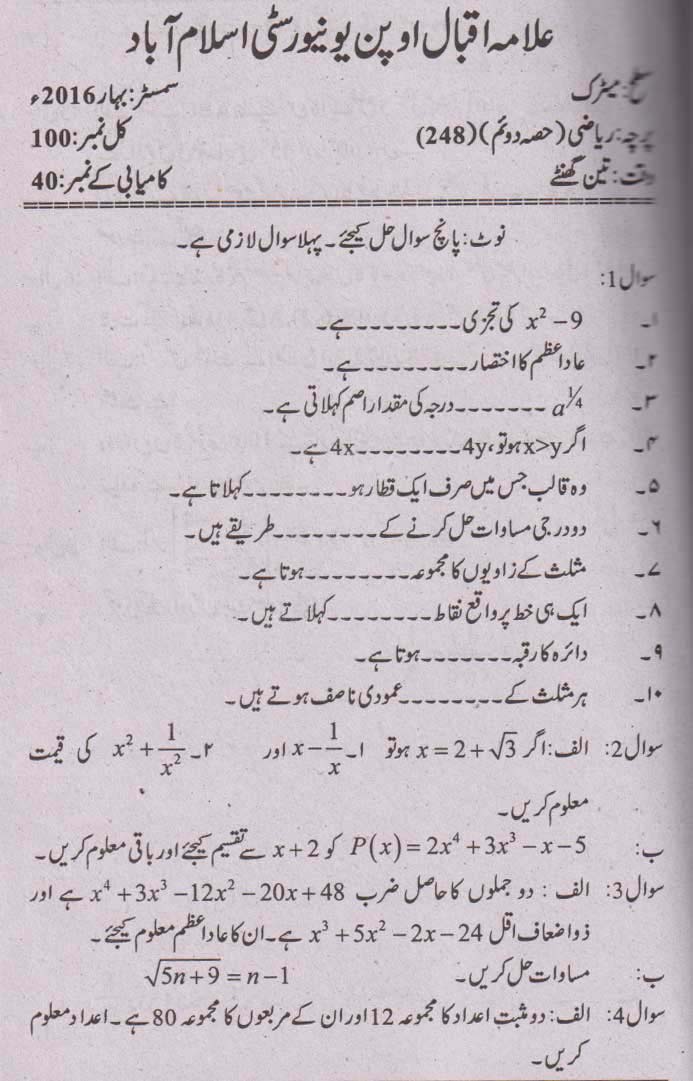 علامہ اقبال اوپن یونیورسٹی اسلام آباد
سطح: میٹرک سمسٹر: بہار 2016ء
پرچہ: ریاضی (حصہ دوئم) (248) کل نمبر: 100
وقت: تین گھنٹے کامیابی کے نمبر: 40
نوٹ: پانچ سوال حل کیجئے۔ پہلا سوال لازمی ہے۔
سوال 1:
۱۔ x² − 9 کی تجزی ........ ہے۔
۲۔ عاد اعظم کا اختصار ........ ہے۔
۳۔ a^¼ ....... درجہ کی مقدار اصم کہلاتی ہے۔
۴۔ اگر x>y ہو تو، 4y ........ 4x ہے۔
۵۔ وہ قالب جس میں صرف ایک قطار ہو ........ کہلاتا ہے۔
۶۔ دو درجی مساوات حل کرنے کے ........ طریقے ہیں۔
۷۔ مثلث کے زاویوں کا مجموعہ ........ ہوتا ہے۔
۸۔ ایک ہی خط پر واقع نقاط ........ کہلاتے ہیں۔
۹۔ دائرہ کا رقبہ ....... ہوتا ہے۔
۱۰۔ ہر مثلث کے ........ عمودی ناصف ہوتے ہیں۔
سوال 2: الف: اگر x = 2 + √3 ہو تو ۱۔ x − 1/x اور ۲۔ x² + 1/x² کی قیمت
معلوم کریں۔
ب: P(x) = 2x⁴ + 3x³ − x − 5 کو x + 2 سے تقسیم کیجئے اور باقی معلوم کریں۔
سوال 3: الف: دو جملوں کا حاصل ضرب x⁴ + 3x³ − 12x² − 20x + 48 ہے اور
ذواضعاف اقل x³ + 5x² − 2x − 24 ہے۔ ان کا عاد اعظم معلوم کیجئے۔
ب: مساوات حل کریں۔ √(5n + 9) = n − 1
سوال 4: الف: دو مثبت اعداد کا مجموعہ 12 اور ان کے مربعوں کا مجموعہ 80 ہے۔ اعداد معلوم
کریں۔